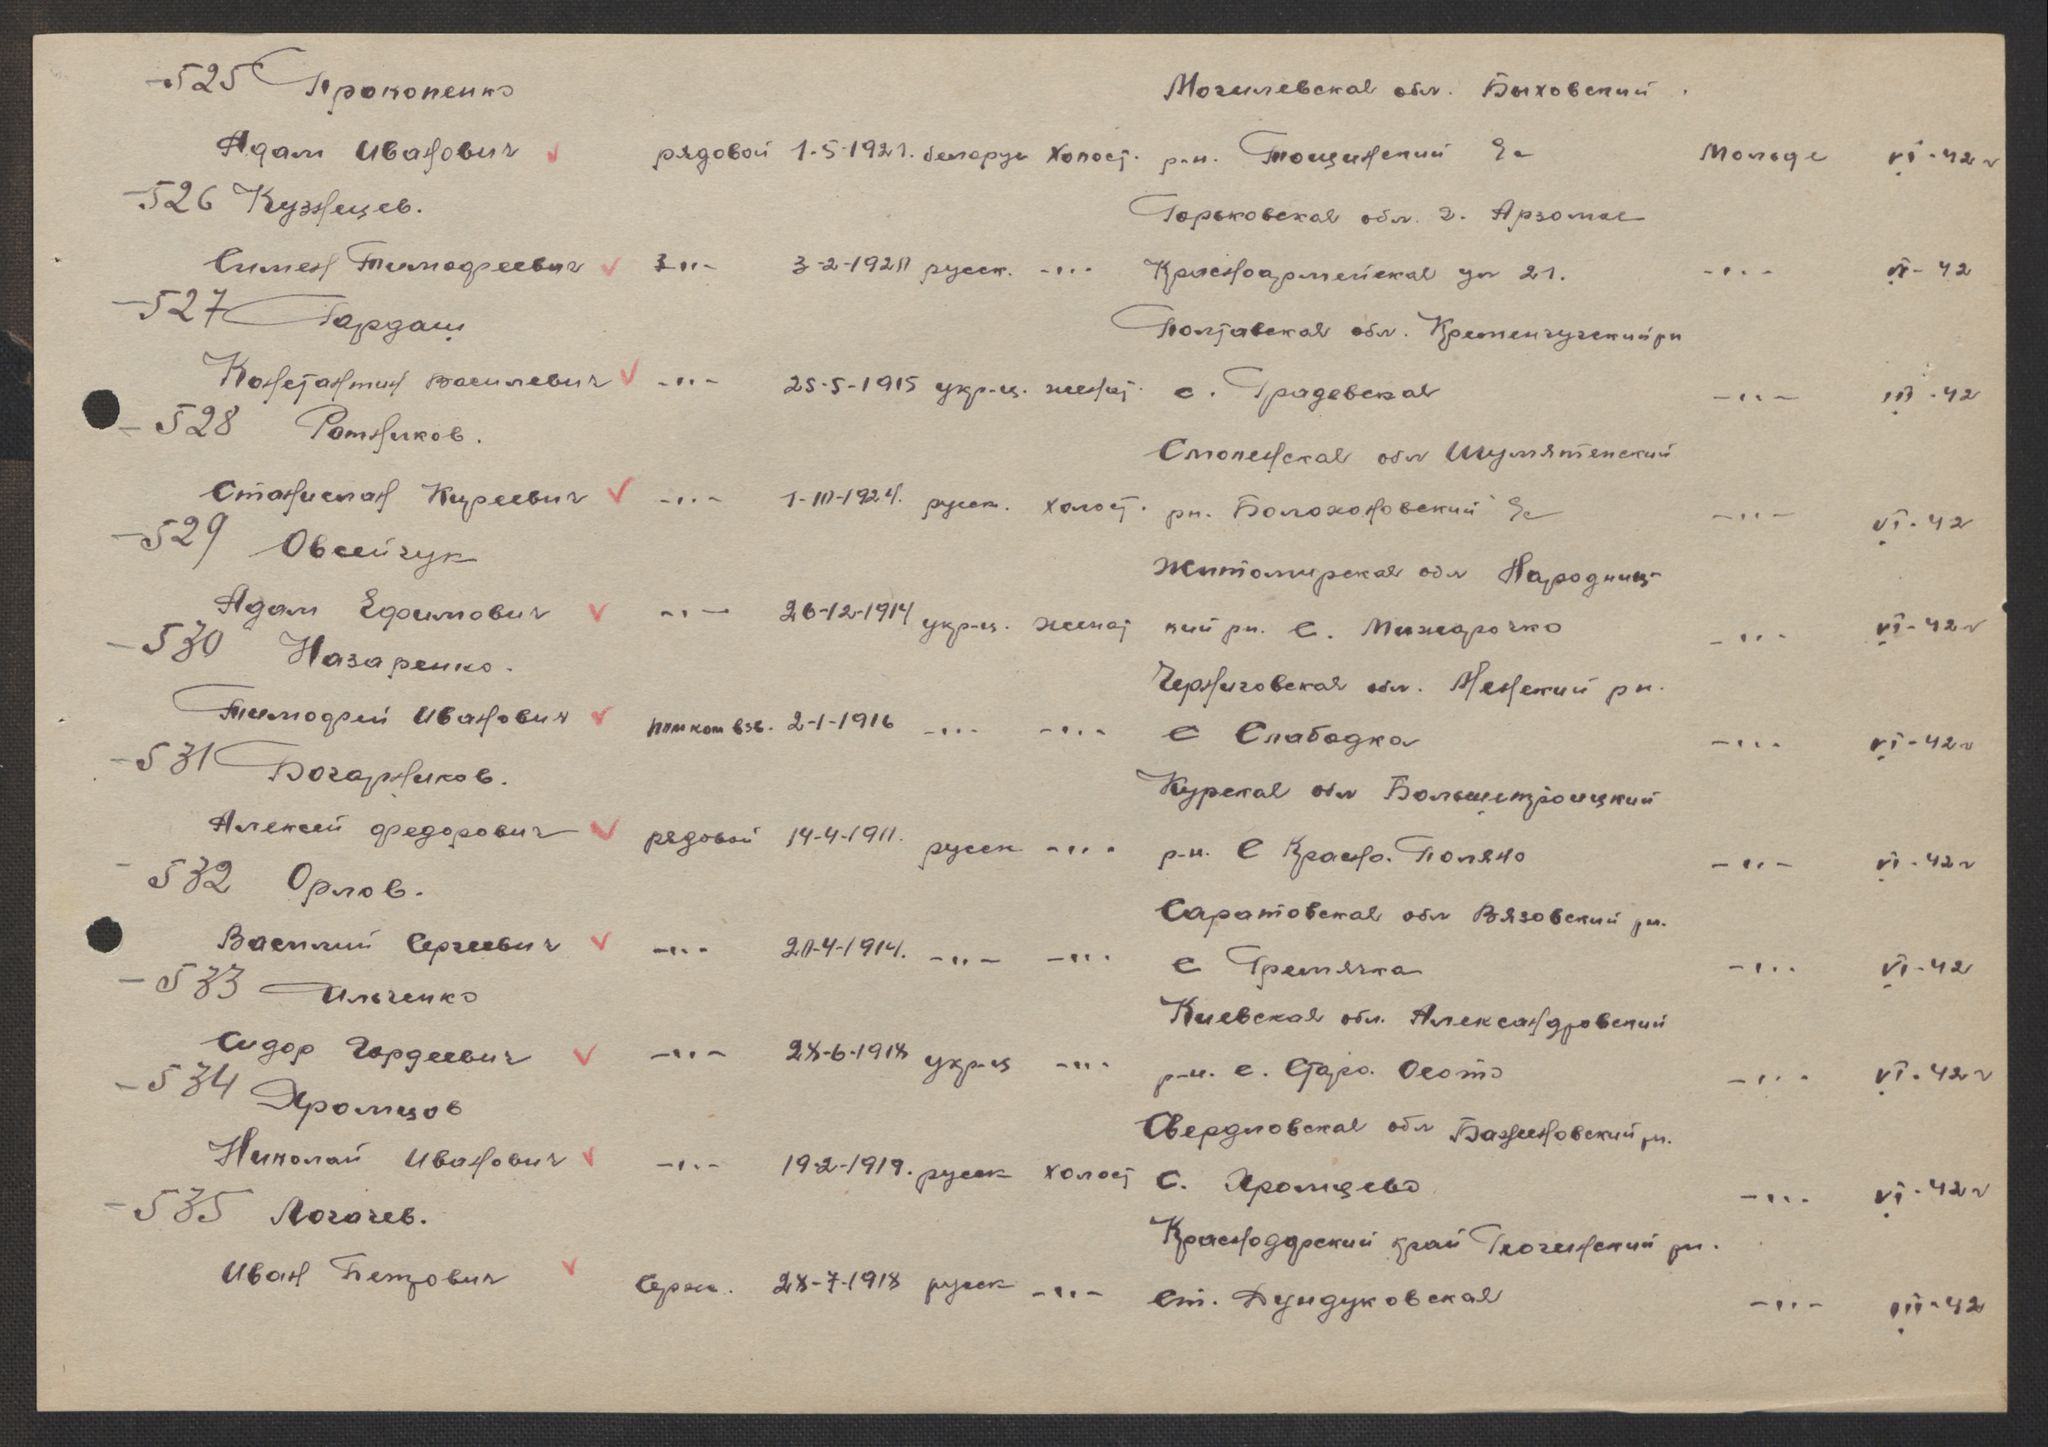 -525 Прокопенко Могилевская обл. Быховский
Адам Иванович ✓ рядовой 1-5-1921. беларус холост. р-н. Тощинский Ꙅс Мольде VI-42 г
-526 Кузнецев. Горьковская обл. г. Арзомас
Симен Тимофреевич ✓ -"- 3-2-1920 русск. -"- Красноармейская ул 21. -"- VI-42
-527 Гардащ Полтавская обл. Кременчугский рн
Константин Василевич ✓ -"- 25-5-1915 укр-ц. женат. с. Градевская -"- III-42
-528 Ротников. Смоленская обл Шумятенский
Станислав Киреевич ✓ -"- 1-10-1924. русск. холост. рн. Болохоновский -"- VI-42
-529 Овсейчук Житомирская обл Народниц-
Адам Ефимович ✓ -"- 26-12-1914 укр-ц. женат кий рн. С. Межарочко -"- VI-42 г
-530 Назаренко. Черниговская обл. Менский рн.
Тимофрей Иванович ✓ помком взв. 2-1-1916 -"- -"- С Слабодка -"- VI-42 г
-531 Бочарников. Курская обл Большетроицкий
Алексей Федорович ✓ рядовой 14-4-1911. русск -"- р-н. С Красно. Поляно -"- VI-42 г
-532 Орлов. Саратовская обл Вязовский рн.
Василий Сергеевич ✓ -"- 20-4-1914. -"- -"- С Гремячка -"- VI-42
-533 Ильченко Киевская обл. Александровский
Сидор Гордеевич ✓ -"- 28-6-1918 укр-ц -"- р-н. с. Старо. Осото -"- VI-42 г
-534 Хромцов Свердловская обл Баженовский рн.
Николай Иванович ✓ -"- 19-2-1919. русск холост С. Хромцево -"- VI-42 г
-535 Логачев. Краснодарский край Гиогинский рн.
Иван Петрович ✓ Серж. 28-7-1918 русск -"- Ст. Дундуковская -"- III-42